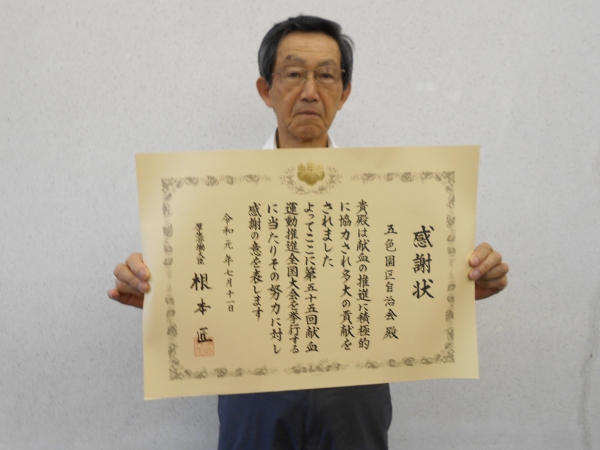 感謝状
五色園区自治会殿
貴殿は献血の推進に積極的
に協力され多大の貢献を
されました
よってここに第五十五回献血
運動推進全国大会を挙行する
に当たりその努力に対し
感謝の意を表します
令和元年七月十一日
厚生労働大臣
根本匠